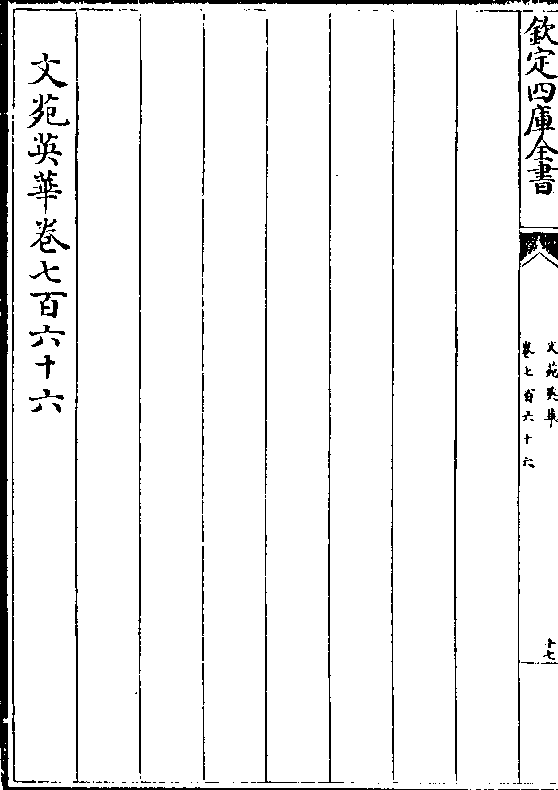 欽定四庫全書
文苑英華
卷七百六十六
十七
文苑英華卷七百六十六